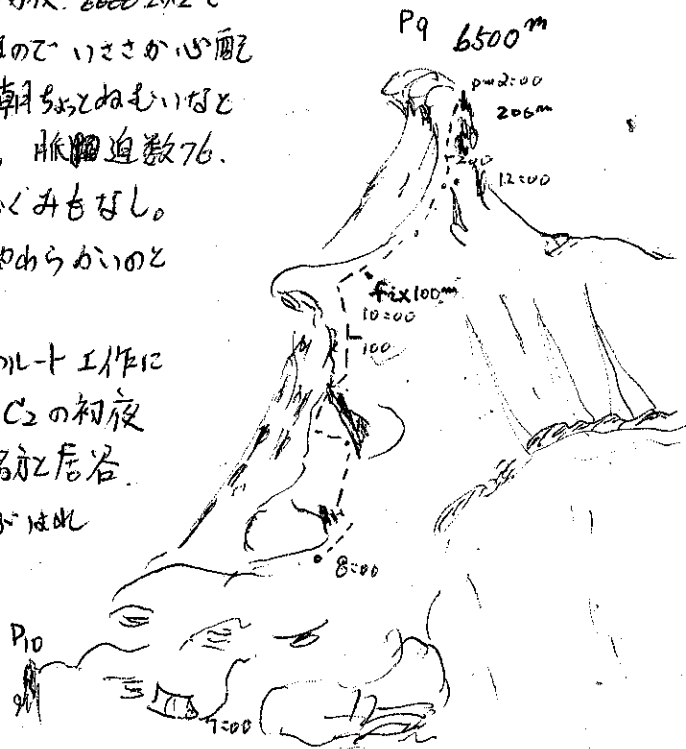 ので いささか心配
朝ちょっとねむいなと
脈 迫数76.
くみもなし。
やわらかいのと
ルート工作に
C2の初夜
と居谷.
がはれ
P9 6500m
pm2:00
206m
200
12:00
fix100m
10:00
100
8:00
P10
7:00